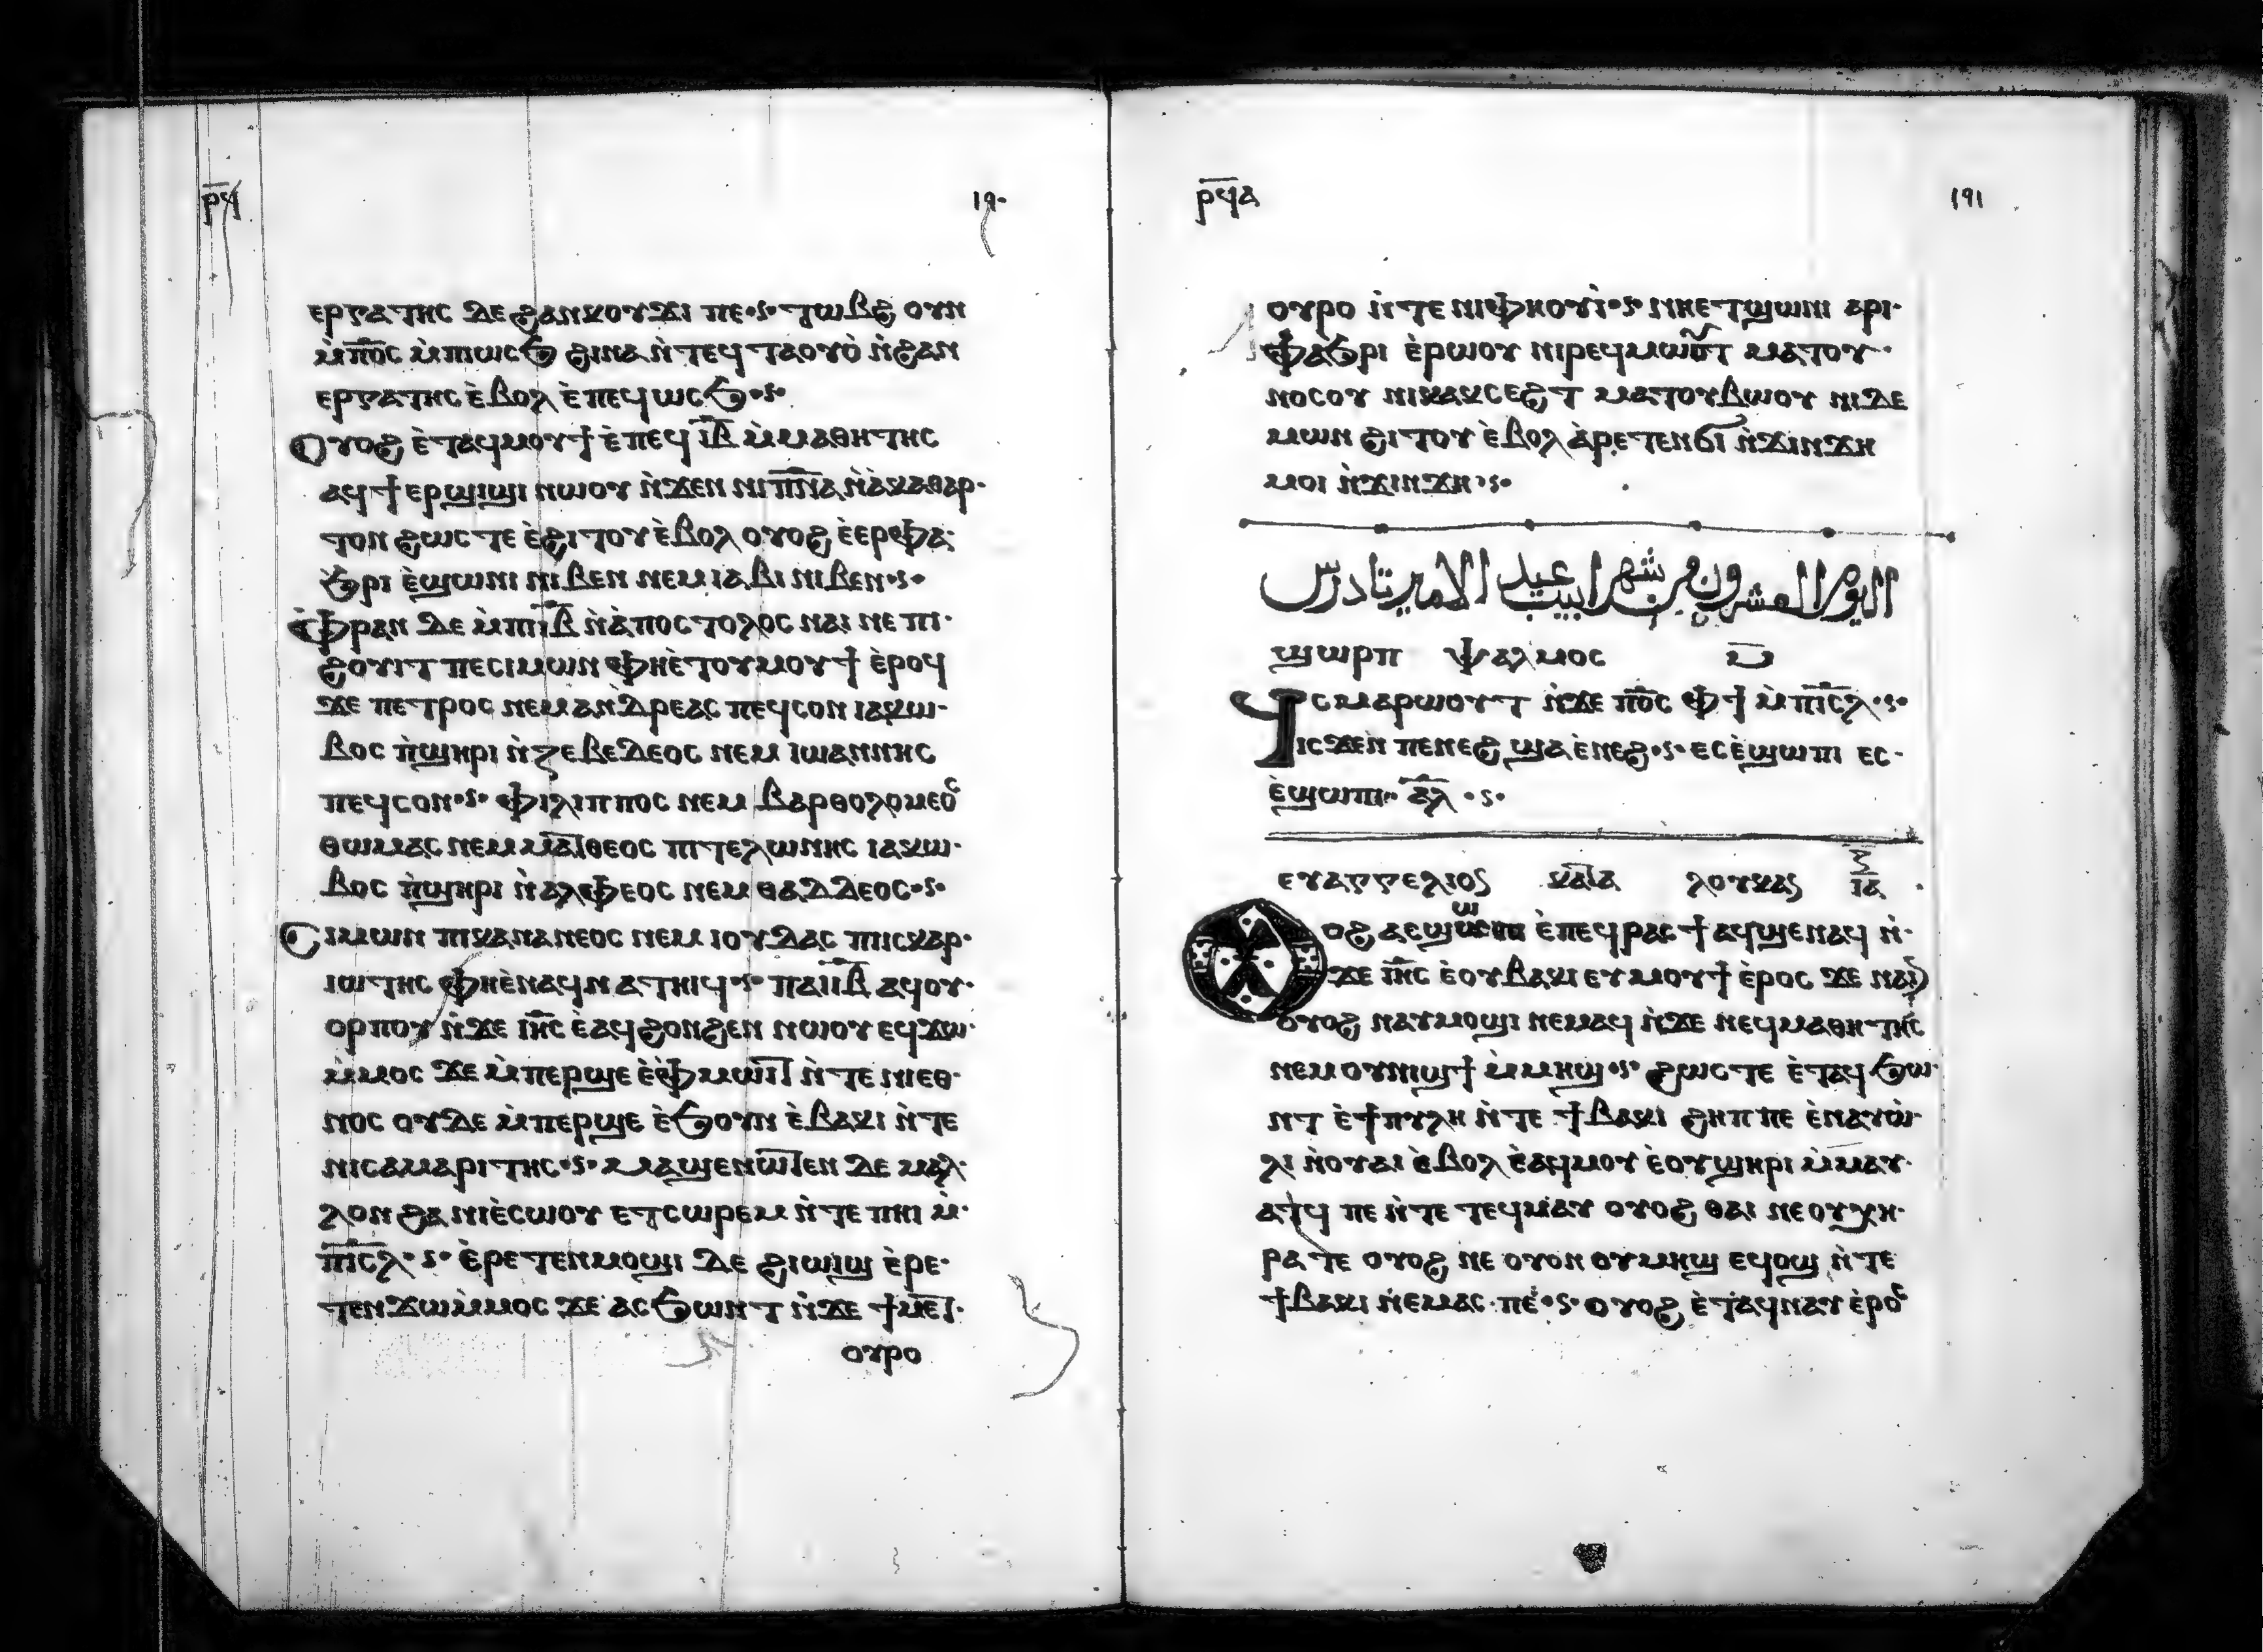 ⲣ̅ϥ
19-
ⲉⲣⲅⲁⲧⲏⲥ ⲇⲉ ϩⲁⲛⲕⲟⲩϫⲓ ⲡⲉ·ⲋ· ⲧⲱⲃϩ ⲟⲩⲛ
ⲙ̀ⲡⲟ̅ⲥ ⲙ̀ⲡⲱⲥϧ ϩⲓⲛⲁ ⲛ̀ⲧⲉϥⲧⲁⲟⲩⲟ̀ ⲛ̀ϩⲁⲛ
ⲉⲣⲅⲁⲧⲏⲥ ⲉ̀ⲃⲟⲗ ⲉ̀ⲡⲉϥⲱⲥϧ·ⲋ·
Ⲟⲩⲟϩ ⲉ̀ⲧⲁϥⲙⲟⲩϯ ⲉ̀ⲡⲉϥⲓ̅ⲃ̅ ⲙ̀ⲙⲁⲑⲏⲧⲏⲥ
ⲁϥϯⲉⲣϣⲓϣⲓ ⲛⲱⲟⲩ ⲛ̀ϫⲉⲛ ⲛⲓⲡ̅ⲛ̅ⲁ ⲛ̀ⲁ̀ⲕⲁⲑⲁⲣ·
ⲧⲟⲛ ϩⲱⲥⲧⲉ ⲉ̀ϩⲓⲧⲟⲩ ⲉ̀ⲃⲟⲗ ⲟⲩⲟϩ ⲉ̀ⲉⲣⲫⲁ·
ϧⲣⲓ ⲉ̀ϣⲱⲛⲓ ⲛⲓⲃⲉⲛ ⲛⲉⲙ ⲓⲁⲃⲓ ⲛⲓⲃⲉⲛ·ⲋ·
Ⲫⲣⲁⲛ ⲇⲉ ⲙ̀ⲡⲓⲓ̅ⲃ̅ ⲛ̀ⲁ̀ⲡⲟⲥⲧⲟⲗⲟⲥ ⲛⲁⲓ ⲛⲉ ⲡⲓ·
ϩⲟⲩⲓⲧ ⲡⲉ ⲥⲓⲙⲱⲛ ⲫⲏⲉ̀ⲧⲟⲩⲙⲟⲩϯ ⲉ̀ⲣⲟϥ
ϫⲉ ⲡⲉⲧⲣⲟⲥ ⲛⲉⲙ ⲁⲛⲇⲣⲉⲁⲥ ⲡⲉϥⲥⲟⲛ ⲓⲁⲕⲱ·
ⲃⲟⲥ ⲡ̀ϣⲏⲣⲓ ⲛ̀ⲍⲉⲃⲉⲇⲉⲟⲥ ⲛⲉⲙ ⲓⲱⲁⲛⲛⲏⲥ
ⲡⲉϥⲥⲟⲛ·ⲋ· ⲫⲓⲗⲓⲡⲡⲟⲥ ⲛⲉⲙ ⲃⲁⲣⲑⲟⲗⲟⲙⲉⲟⲥ
ⲑⲱⲙⲁⲥ ⲛⲉⲙ ⲙⲁⲧⲑⲉⲟⲥ ⲡⲓⲧⲉⲗⲱⲛⲏⲥ ⲓⲁⲕⲱ·
ⲃⲟⲥ ⲡ̀ϣⲏⲣⲓ ⲛ̀ⲁⲗⲫⲉⲟⲥ ⲛⲉⲙ ⲑⲁⲇⲇⲉⲟⲥ·ⲋ·
Ⲥⲓⲙⲱⲛ ⲡⲓⲕⲁⲛⲁⲛⲉⲟⲥ ⲛⲉⲙ ⲓⲟⲩⲇⲁⲥ ⲡⲓⲥⲕⲁⲣ·
ⲓⲱⲧⲏⲥ ⲫⲏⲉ̀ⲛⲁϥⲛⲁⲧⲏⲓϥ·ⲋ· ⲡⲁⲓⲓ̅ⲃ̅ ⲁϥⲟⲩ·
ⲟⲣⲡⲟⲩ ⲛ̀ϫⲉ ⲓⲏ̅ⲥ ⲉ̀ⲁϥϩⲟⲛϩⲉⲛ ⲛⲱⲟⲩ ⲉϥϫⲱ·
ⲙ̀ⲙⲟⲥ ϫⲉ ⲙ̀ⲡⲉⲣϣⲉ ⲉ̀ⲫⲙⲱⲓⲧ ⲛ̀ⲧⲉ ⲛⲓⲉⲑ·
ⲛⲟⲥ ⲟⲩⲇⲉ ⲙ̀ⲡⲉⲣϣⲉ ⲉ̀ϧⲟⲩⲛ ⲉ̀ⲃⲁⲕⲓ ⲛ̀ⲧⲉ
ⲛⲓⲥⲁⲙⲁⲣⲓⲧⲏⲥ·ⲋ· ⲙⲁϣⲉⲛⲱⲧⲉⲛ ⲇⲉ ⲙⲁⲗ·
ⲗⲟⲛ ϩⲁ ⲛⲓⲉ̀ⲥⲱⲟⲩ ⲉⲧⲥⲱⲣⲉⲙ ⲛ̀ⲧⲉ ⲡⲏⲓ ⲙ̀·
ⲡⲓ̅ⲥ̅ⲗ·ⲋ· ⲉ̀ⲣⲉⲧⲉⲛⲙⲟϣⲓ ⲇⲉ ϩⲓⲱⲓϣ ⲉ̀ⲣⲉ·
ⲧⲉⲛϫⲱⲙ̀ⲙⲟⲥ ϫⲉ ⲁⲥϧⲱⲛⲧ ⲛ̀ϫⲉ ϯⲙⲉⲧ·
ⲟⲩⲣⲟ
ⲣ̅ϥ̅ⲁ
191
ⲟⲩⲣⲟ ⲛ̀ⲧⲉ ⲛⲓⲫⲏⲟⲩⲓ̀·ⲋ· ⲛⲏⲉⲧϣⲱⲛⲓ ⲁⲣⲓ·
ⲫⲁϧⲣⲓ ⲉ̀ⲣⲱⲟⲩ ⲛⲓⲣⲉϥⲙⲱⲟⲩⲧ ⲙⲁⲧⲟⲩ·
ⲛⲟⲥⲟⲩ ⲛⲓⲕⲁⲕⲥⲉϩⲧ ⲙⲁⲧⲟⲩⲃⲱⲟⲩ ⲛⲓⲇⲉ
ⲙⲱⲛ ϩⲓⲧⲟⲩ ⲉ̀ⲃⲟⲗ ⲁ̀ⲣⲉⲧⲉⲛϭⲓ ⲛ̀ϫⲓⲛϫⲏ
ⲙⲟⲓ ⲛ̀ϫⲓⲛϫⲏ·ⲋ·
اليوم العشرون من شهر ابيب عيد الامير تادرس
ϣⲱⲣⲡ ⲯⲁⲗⲙⲟⲥ ⲙ̅
Ϥⲥⲙⲁⲣⲱⲟⲩⲧ ⲛ̀ϫⲉ ⲡⲟ̅ⲥ ⲫϯ ⲙ̀ⲡⲓ̅ⲥ̅ⲗ·ⲋ·
ⲓⲥϫⲉⲛ ⲡⲉⲛⲉϩ ϣⲁ ⲉ̀ⲛⲉϩ·ⲋ· ⲉⲥⲉ̀ϣⲱⲡⲓ ⲉⲥ·
ⲉ̀ϣⲱⲡⲓ· ⲁ̅ⲗ̅·ⲋ·
ⲉⲩⲁⲅⲅⲉⲗⲓⲟⲥ ⲕⲁⲧⲁ ⲗⲟⲩⲕⲁⲥ ⲍ̅ ⲓⲁ
Ⲟⲩⲟϩ ⲁⲥϣⲱⲡⲓ ⲉ̀ⲡⲉϥⲣⲁⲥϯ ⲁϥϣⲉⲛⲁϥ ⲛ̀·
ϫⲉ ⲓⲏ̅ⲥ ⲉ̀ⲟⲩⲃⲁⲕⲓ ⲉⲩⲙⲟⲩϯ ⲉ̀ⲣⲟⲥ ϫⲉ ⲛⲁⲓⲛ
ⲟⲩⲟϩ ⲛⲁⲩⲙⲟϣⲓ ⲛⲉⲙⲁϥ ⲛ̀ϫⲉ ⲛⲉϥⲙⲁⲑⲏⲧⲏⲥ
ⲛⲉⲙ ⲟⲩⲛⲓϣϯ ⲙ̀ⲙⲏϣ·ⲋ· ϩⲱⲥⲧⲉ ⲉ̀ⲧⲁϥϧⲱ·
ⲛⲧ ⲉ̀ϯⲡⲩⲗⲏ ⲛ̀ⲧⲉ ϯⲃⲁⲕⲓ ϩⲏⲡⲡⲉ ⲉ̀ⲛⲁⲩⲱ̀·
ⲗⲓ ⲛ̀ⲟⲩⲁⲓ ⲉ̀ⲃⲟⲗ ⲉ̀ⲁϥⲙⲟⲩ ⲉ̀ⲟⲩϣⲏⲣⲓ ⲙ̀ⲙⲁⲩ·
ⲁⲧϥ ⲡⲉ ⲛ̀ⲧⲉ ⲧⲉϥⲙⲁⲩ ⲟⲩⲟϩ ⲑⲁⲓ ⲛⲉ ⲟⲩⲭⲏ·
ⲣⲁ ⲧⲉ ⲟⲩⲟϩ ⲛⲉ ⲟⲩⲟⲛ ⲟⲩⲙⲏϣ ⲉϥⲟϣ ⲛ̀ⲧⲉ
ϯⲃⲁⲕⲓ ⲛⲉⲙⲁⲥ ⲡⲉ·ⲋ· ⲟⲩⲟϩ ⲉ̀ⲧⲁϥⲛⲁⲩ ⲉ̀ⲣⲟⲥ